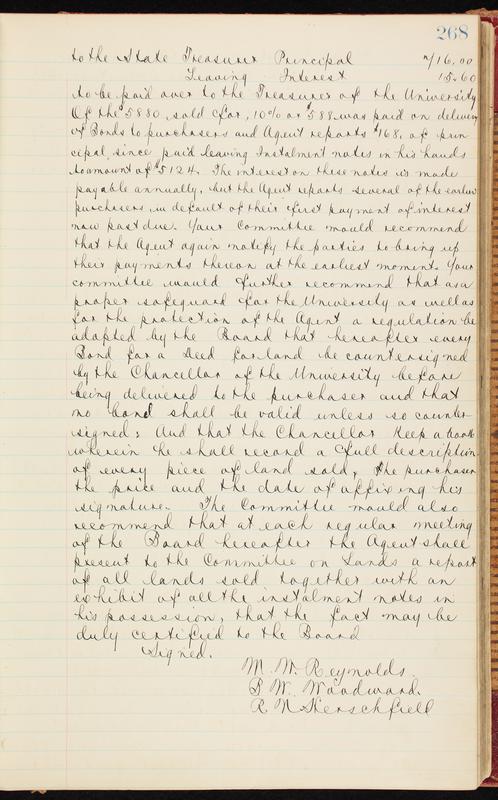 268
to the State Treasurer Principal 716.00
Leaving Interest 15.60
to be paid over to the Treasurer of the University
Of the $5880, sold for, 10% or $588 was paid on delivery
of Bonds to purchasers and Agent reports $168. of prin-
cipal since paid leaving Instalment notes in his hands
to amount of $5124. The interest on these notes is made
payable annually, but the Agent reports several of the earlier
purchasers, in default of their first payment of interest
now past due. Your Committee would recommend
that the Agent again notify the parties to bring up
their payments thereon at the earliest moment. Your
committee would further recommend that as a
proper safeguard for the University as well as
for the protection of the Agent a regulation be
adopted by the Board that hereafter every
Bond for a Deed for land be countersigned
by the Chancellor of the University before
being delivered to the purchaser and that
no bond shall be valid unless so counter-
signed; And that the Chancellor Keep a book
wherein he shall record a full description
of every piece of land sold, the purchaser
the price and the date of affixing his
signature. The Committee would also
recommend that at each regular meeting
of the Board hereafter the Agent shall
present to the Committee on Lands a report
of all lands sold together with an
exhibit of all the instalment notes in
his possession, that the fact may be
duly certified to the Board
Signed.
M. W. Reynolds
B W. Woodward.
A N Herschfield